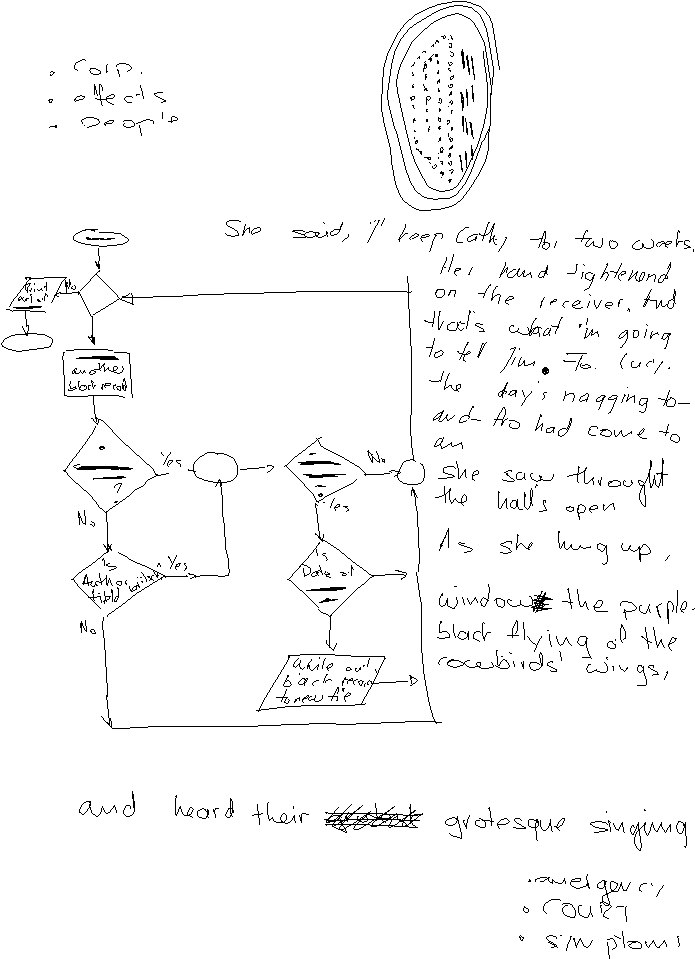 • Corp.
• effects
• People
She said, I'll keep Cathy for two weeks.
Her hand tightenend
on the receiver. And
that's what I'm going
to tell Jim. To Lucy.
the day's nagging to-
and-fro had come to
an
she saw throught
the hall's open
As she hung up,
window the purple-
black flying of the
cowbirds' wings,
No
Print
out of
another
black record
Yes
?
No
No
Yes
Is
Author
field
Yes
No
Is
Date of
While out
black record
to new file
and heard their grotesque singing
• emergency
• COURT
• simptoms